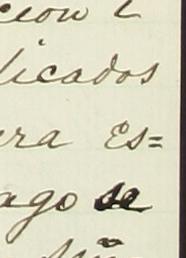 cion i
licados
era Es=
ago se